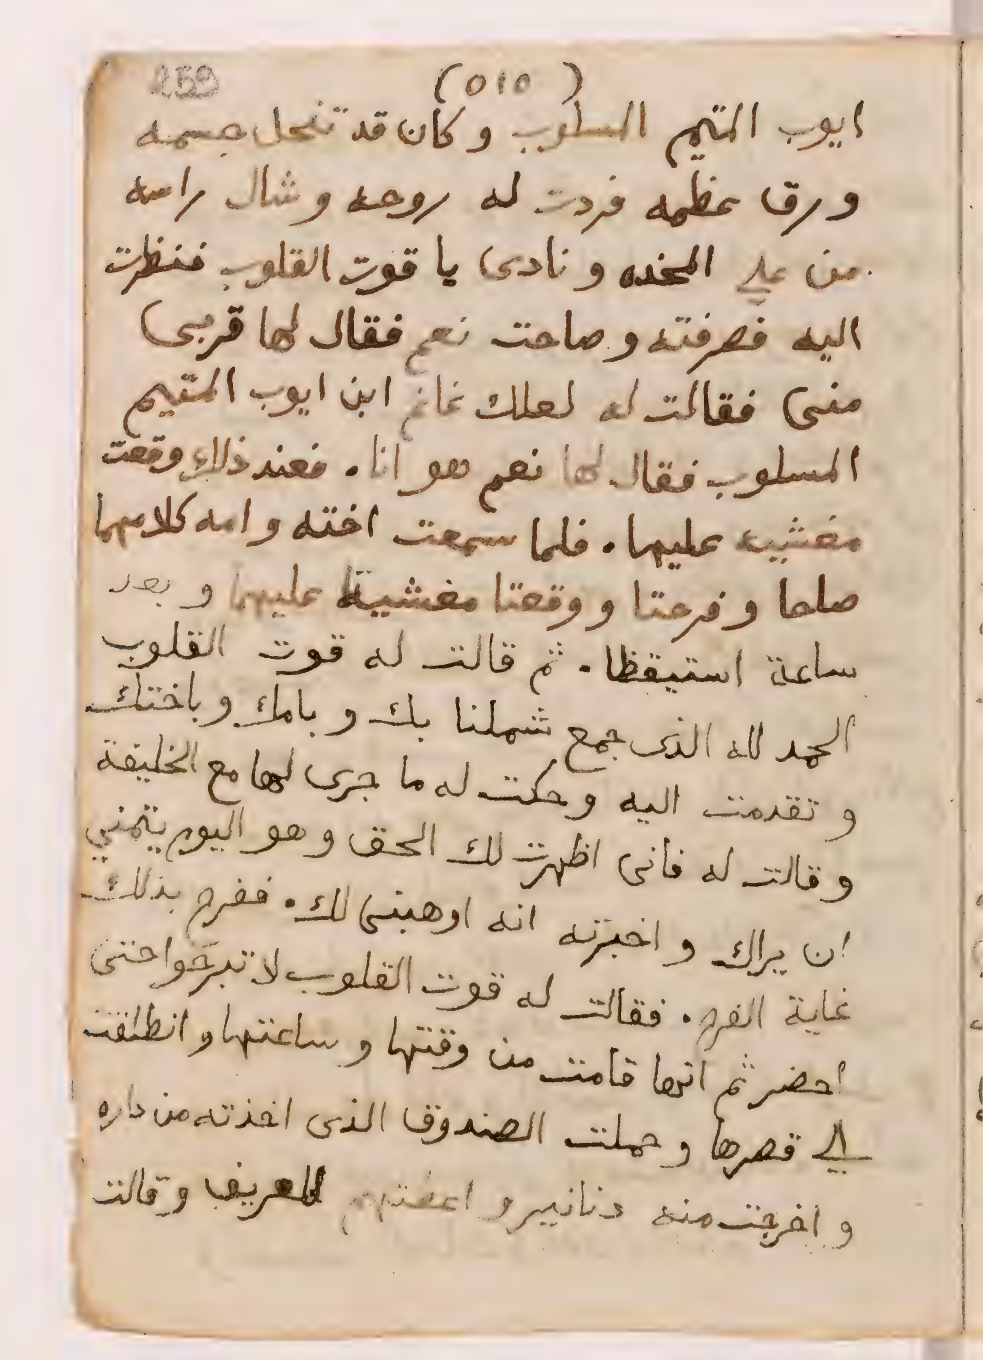 259
(٥١٥)
ايوب المتيم المسلوب وكان قد تنحل جسمه
ورق عظمه فردت له روحه وشال راسه
من علي المخده ونادى يا قوت القلوب فنظرت
اليه فعرفته وصاحت نعم فقال لها قربى
منى فقالت له لعلك غانم ابن ايوب المتيم
المسلوب فقال لها نعم هو انا. فعند ذلك وقعت
مغشيه عليها. فلما سمعت اخته وامه كلامهما
صاحا وفرحتا ووقعتا مغشية عليهما وبعد
ساعة استيقظا. ثم قالت له قوت القلوب
الحمد لله الذى جمع شملنا بك وبامك وباختك
وتقدمت اليه وحكت له ما جرى لها مع الخليفة
وقالت له فانى اظهرت لك الحق وهو اليوم يتمني
ان يراك واخبرته انه اوهبنى لك. ففرح بذلك
غاية الفرح. فقالت له قوت القلوب لا تبرحوا حتى
احضر ثم انها قامت من وقتها وساعتها وانطلقت
الي قصرها وحملت الصندوق الذى اخذته من داره
واخرجت منه دنانير واعطتهم للعريف وقالت